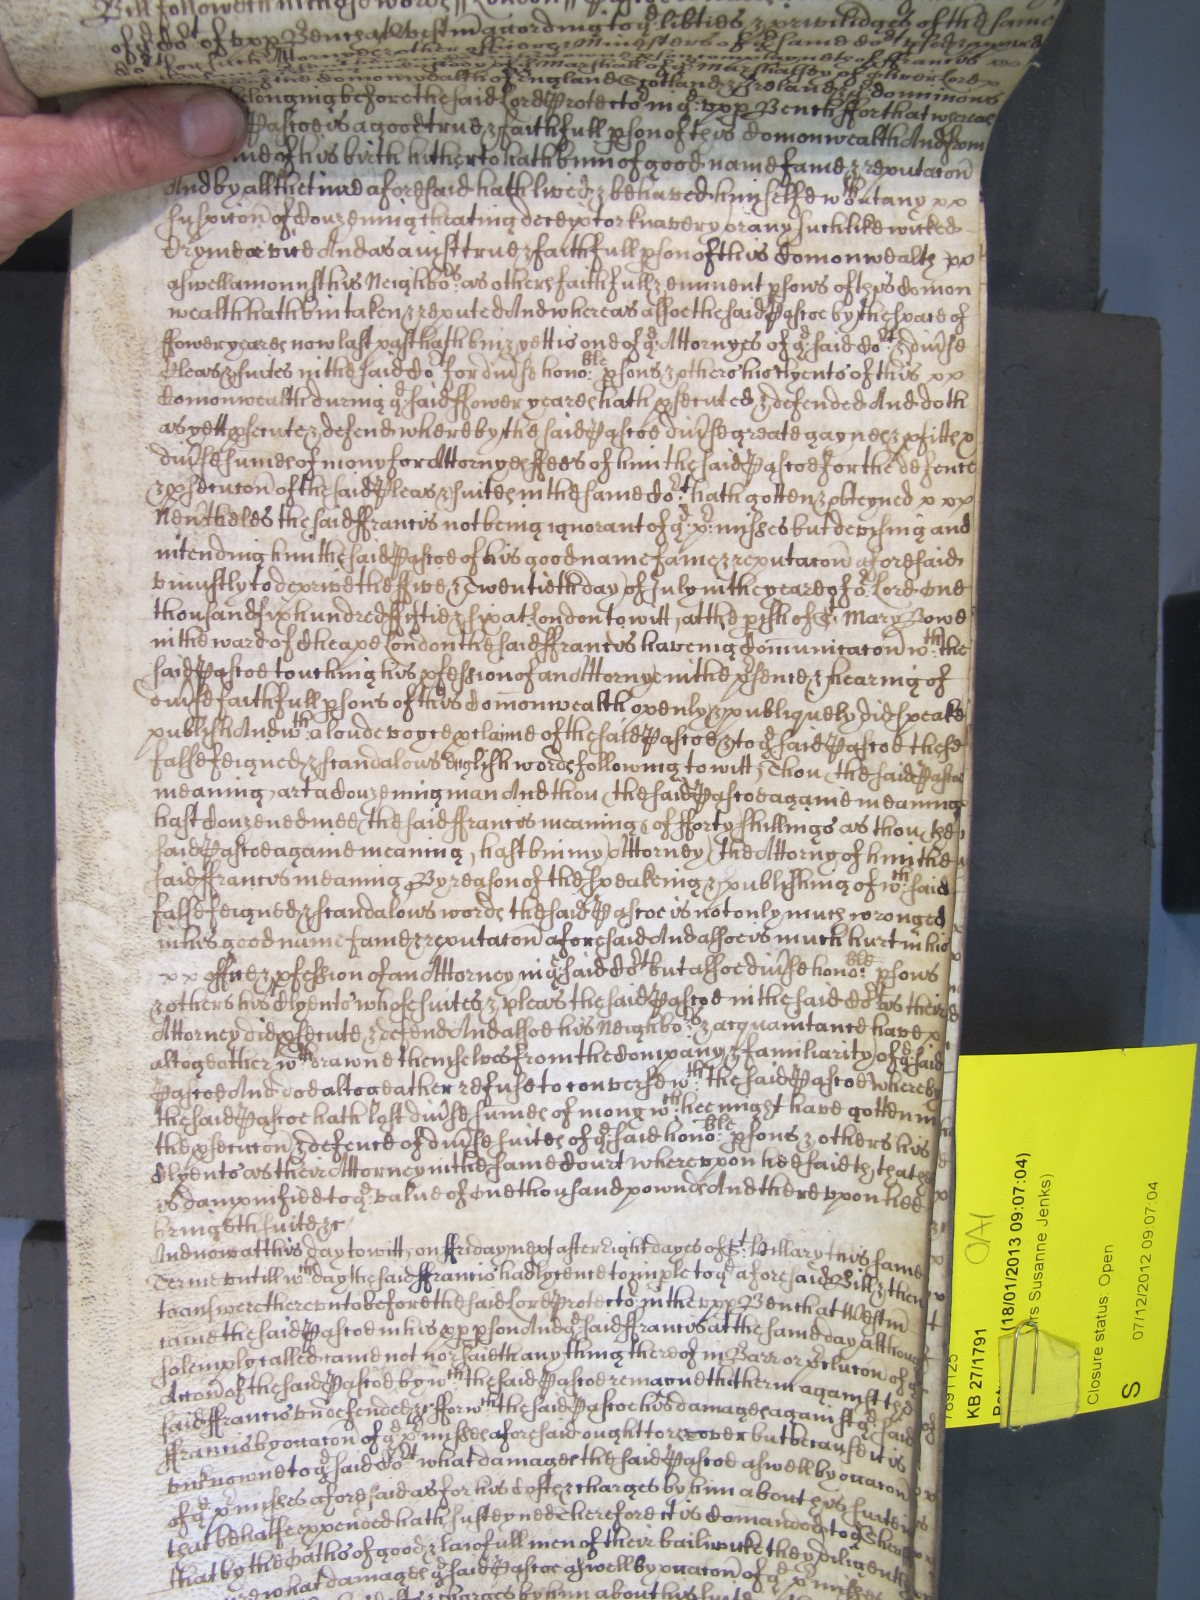 Bill followeth in these words // London //
of the Cort of vpp Bench at Westm according to the lib'ties & priviledges of the same
Comonwealth of England Scotland & Ireland & the dominions
belonging before the said Lord Protector in the vpp Bench ffor that whereas
Pascoe is a good true & faithfull pson of this Comonwealth And from
time of his birth hitherto hath binn of good name fame & reputacon
And by all the time aforesaid hath lived & behaved himselfe wthout any xx
suspicon of Couzening cheating deceypt or knavery or any such like wicked
Cryme or vice And as a iust true & faithfull pson of this Comonwealth xx
aswell amonnst his Neighbors: as others faithfull & eminent psons of this Comon
wealth hath bin taken & reputed And whereas allsoe the said Pascoe by the space of
ffower yeares now last past hath bin & yett is one of the Attornyes of the said Cort & divse
Pleas & suites in the said Cort for divse honoble: psons & others his Clyents of this xx
Comonwealth during the said ffower yeares hath psecuted & defended And doth
as yett psecute & defend whereby the said Pascoe divse greate gaynes & pfitts
divse sumes of mony for Attornyes ffees of him the said Pascoe for the defence
& psecucon of the said Pleas & suites in the same Cort: hath gotten & obteyned x xx
Nevtheles the said ffrancis not being ignorant of the pr:misses but devising and
intending him the said Pascoe of his good name fame & reputacon aforesaid
vniustly to deprive the ffive & Twentieth day of July in the yeare of or Lord One
thousand six hundred ffiftie & six at London to witt, at the pish of St: Mary Bowe
in the ward of Cheape London the said ffrancis haveing Comunicacon wth: the
said Pascoe touching his pfession of an Attorny in the prsence & hearing of
divse faithfull psons of this Comonwealth openly & publiquely did speake
publish And wth: a loude voyce exclaime of the said Pascoe & to the said Pascoe these
false feigned & scandalous English words following to witt, Thou (the said Pascoe
meaning) art a Couzenning man And thou (the said Pascoe againe meaning
hast Couzened mee (the said ffrancis meaning) of fforty shillings as thou (the
said Pascoe againe meaning) hast bin my Attorney (the Attorny of him the
said ffrancis meaning By reason of the speakeing & publishing of wch: said
false feigned & scandalows words the said Pascoe is not only much wronged
in his good name fame & reputacon aforesaid And allsoe is much hurt in his
xx office & pfession of an Attorney in the said Cort but allsoe divse honoble: psons
& others his Clyents whose suites & pleas the said Pascoe in the said Cort as their
Attorney did psecute & defend And allsoe his Neighbors: & acquaintance have x
altogeather wthdrawne themselves from the Company & familiarity of the said
Pascoe And doe altogeather refuse to converse wth: the said Pascoe Whereby
the said Pascoe hath lost divse sumes of mony wch: hee might have gotten in
the psecucon & defence of divse suites of the said honoble: psons & others his
Clyents as their Attorney in the same Court whereupon hee saith that hee
is dampnified to the value of One thousand pownds And thereupon hee
bringeth suite &c
And now at this day to witt, on ffriday next after eight dayes of St: Hillary this same
Terme vntill wch day the said ffrancis had lycence to imple to the aforesaid Bill & then
to answere therevnto before the said Lord Protector in the vpp Bench at Westm
came the said Pascoe in his pp pson And the said ffrancis at the same day although
solemply called came not nor saith any thing thereof in Barr or pclucon of the
Accon of the said Pascoe by wch the said Pascoe remaineth therin against the
said ffrancis vndefended &c ffor wch: the said Pascoe his damages against the said
ffrancis by occacon of the pr:misses aforesaid ought to recover but because it is
vnknowne to the said Cort what damages the said Pascoe aswell by occacon
of the pr:misses aforesaid as for his Costs & charges by him about his suite in
that behalfe expended hath susteyned Therefore it is Comanded to the Sheriffs
that by the Oaths of good & lawfull men of their bailiwicke they diligently
what damages the said Pascoe aswell by occacon of the pr:misses
charges by him about his suite
7891125
KB 27/1791
(18/01/2013 09:07:04)
rs Susanne Jenks)
OA1
Closure status: Open
S
07/12/2012 09:07:04